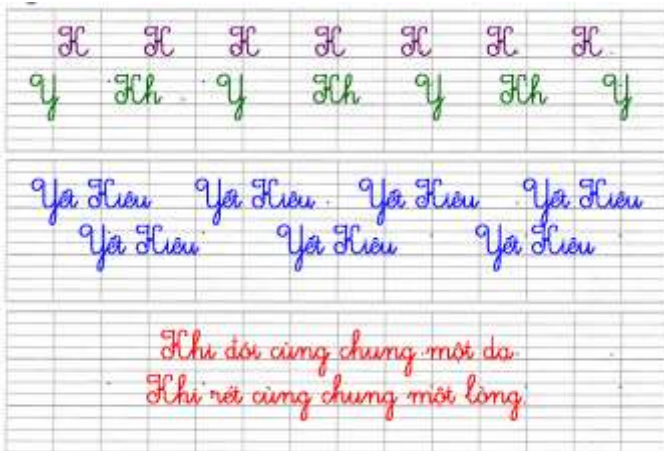 K K K K K K K
Y Kh Y Kh Y Kh Y
Yết Kiêu Yết Kiêu Yết Kiêu Yết Kiêu
Yết Kiêu Yết Kiêu Yết Kiêu
Khi đói cùng chung một dạ
Khi rét cùng chung một lòng.